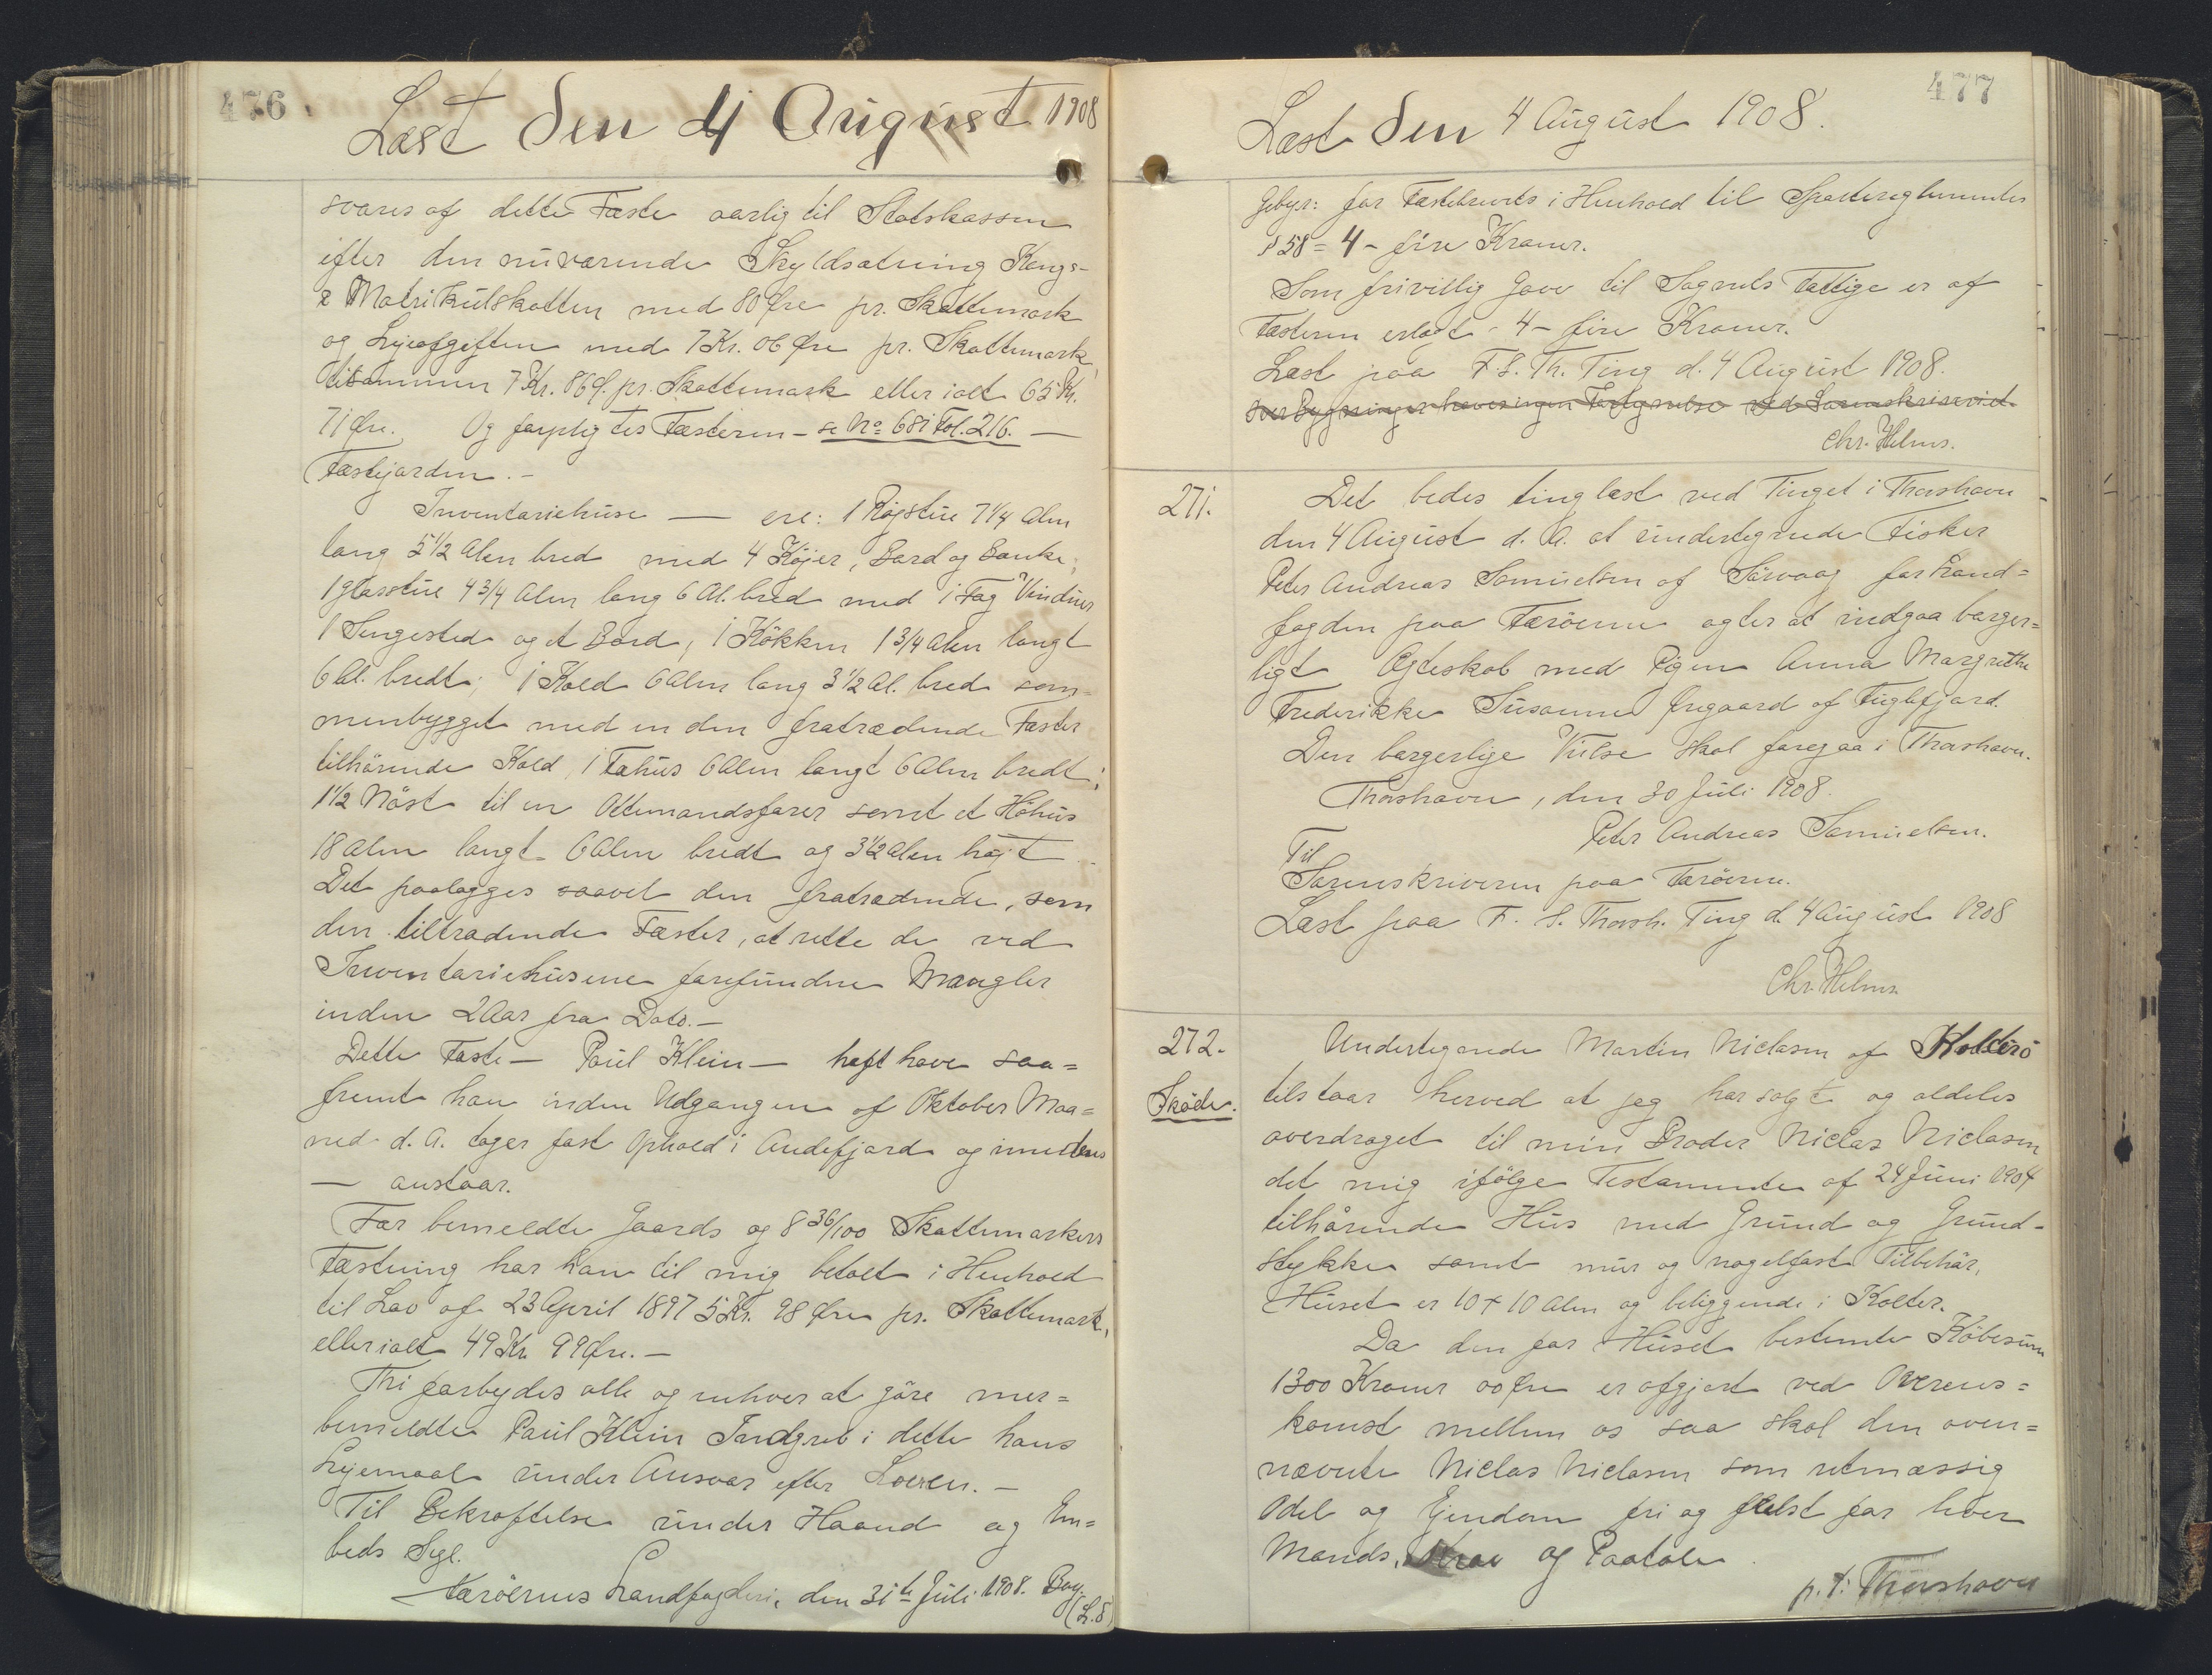 476.
Læst den 4 August 1908
svares af dette Fæste aarlig til Statskassen
efter den nuværende Skyldsætning Kongs-
& Matrikulskatten med 80 Øre pr. Skattemark
og Lejeafgiften med 7 Kr. 06 Øre pr. Skattemark,
tilsammen 7 Kr. 86 Ø. pr. Skattemark eller ialt 65 Kr.
71 Øre. Og forpligtes Fæsteren - se No 68 i Fol. 216. —
Fæstejorden. -
Inventariehuse — ere: 1 Røgstue 7 1/4 Alen
lang 5 1/2 Alen bred med 4 Køjer, Bord og Bænke;
1 Glasstue 4 3/4 Alen lang 6 Al. bred med 1 Fag Vinduer
1 Sengested og et Bord, 1 Køkken 1 3/4 Alen langt
6 Al. bredt; 1 Kold 6 Alen lang 3 1/2 Al. bred sam=
menbygget med en den fratrædende Fæster
tilhørende Kold, 1 Fæhus 6 Alen langt 6 Alen bredt;
1 1/2 Nöst til en Ottemandsfarer samt et Höhus
18 Alen langt 6 Alen bredt og 3 1/2 Alen højt
Det paalægges saavel den fratrædende, som
den tiltrædende Fæster, at rette de ved
Inventariehusene forefundne Mangler
inden 2 Aar fra Dato. -
Dette Fæste — Paul Klein — haft have saa=
fremt han inden Udgangen af Oktober Maa=
ned d. A. tager fast Ophold i Andefjord og imidlens
— anstaar.
For bemeldte Gaards og 8 36/100 Skattemarkers
Fæstning har han til mig betalt i Henhold
til Lov af 23 April 1897 5 Kr. 98 Øre pr. Skattemark,
eller ialt 49 Kr. 99 Øre. -
Thi forbydes alle og enhver at göre mer=
bemeldte Paul Klein Indgreb i dette hans
Lejemaal under Ansvar efter Loven. -
Til Bekræftelse under Haand og Em=
beds Segl.
Færöernes Landfogderi, den 31te Juli 1908. Bay.
(L.S)
477
Læst den 4 August 1908.
Gebyr: for Fæstebrevets i Henhold til Sportelreglementets
§ 58 = 4 - fire Kroner.
Som frivillig Gave til Sognets Fattige er af
Fæsteren erlagt - 4 - fire Kroner.
Læst paa F. S. Th. Ting d. 4 August 1908.
over Bygninger haves ingen Fortegnelse ved Sorenskriveriet.
Chr. Helms.
271.
Det bedes tinglæst ved Tinget i Thorshavn
den 4 August d. A. at undertegnede Fisker
Peter Andreas Samuelsen af Sörvaag for Land=
fogden paa Færöerne agter at indgaa borger=
ligt Ægteskab med Pigen Anna Margrethe
Frederikke Susanne Øregaard af Fuglefjord.
Den borgerlige Vielse skal foregaa i Thorshavn.
Thorshavn, den 30 Juli 1908.
Peter Andreas Samuelsen.
Til
Sorenskriveren paa Færöerne.
Læst paa F. S. Thorsh. Ting d. 4 August 1908
Chr. Helms.
272.
Sköde.
Undertegnede Martin Niclasen af Kolterö
tilstaar herved at jeg har solgt og aldeles
overdraget til min Broder Niclas Niclasen
det mig ifölge Testamente af 24 Juni 1904
tilhörende Hus med Grund og Grund-
stykke samt mur og nagelfast Tilbehör,
Huset er 10 + 10 Alen og beliggende i Kolter.
Da den for Huset bestemte Köbesum
1300 Kroner 00 Øre er afgjort ved Overens=
komst mellem os saa skal den oven=
nævnte Niclas Niclasen som retmæssig
Odel og Ejendom fri og frelst for hver
Mands, Krav og Paatale
p. t. Thorshavn